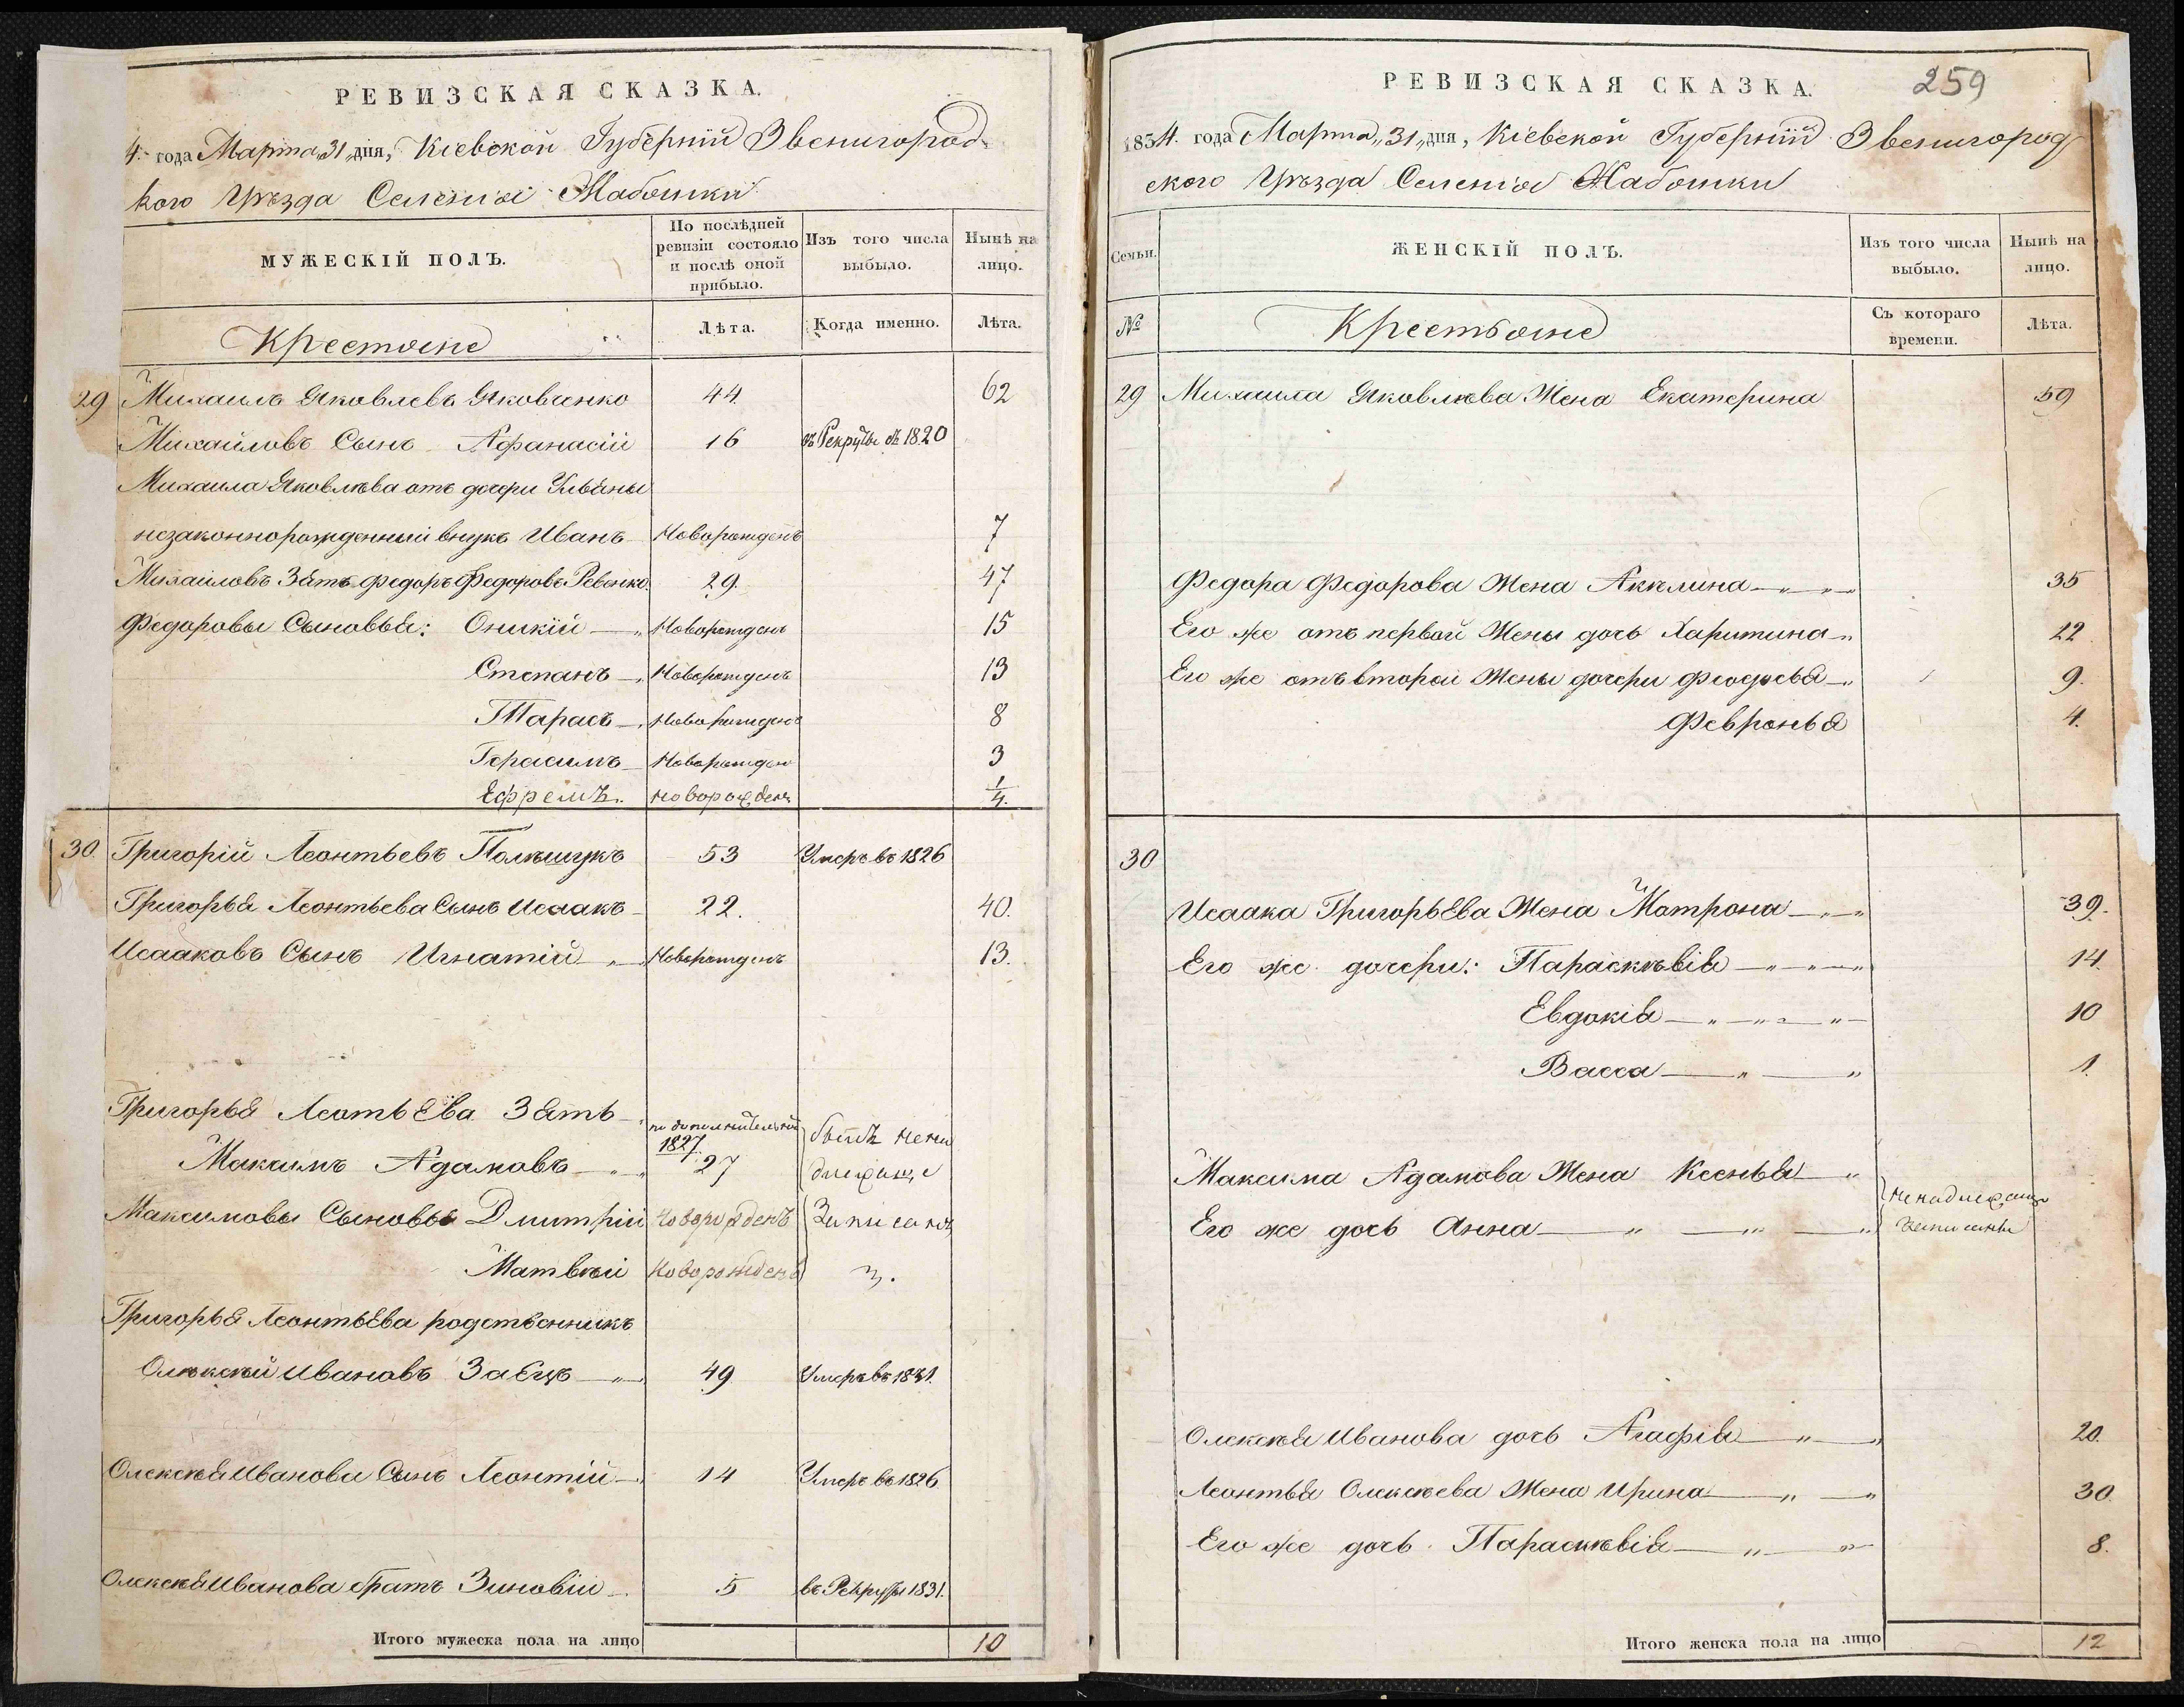 РЕВИЗСКАЯ СКАЗКА.
4. года Марта „31„ дня, Кіевской Губерніи Звенигород-
кого Уѣзда Селенія Жабошки
МУЖЕСКІЙ ПОЛЪ.
По послѣдней ревизіи состояло и послѣ оной прибыло.
Изъ того числа выбыло.
Нынѣ на лицо.
Крестьяне
Лѣта.
Когда именно.
Лѣта.
29 Михаилъ Яковлевъ Яковченко 44. 62
Михайловъ Сынъ Афанасій 16 въ Рекруты въ 1820
Михаила Яковлѣва отъ дочери Ульяны
незаконнорожденный внукъ Иванъ Новорожденъ 7
Михаиловъ Зять Федоръ Федоровъ Ревенко. 29. 47
Федоровы Сыновья: Оникій Новорожденъ 15
Степанъ Новорожденъ 13
Тарасъ Новорожденъ 8
Герасимъ Новорожден 3
Ефремъ. Новорожденъ 1/4.
30. Григорій Леонтьевъ Полѣщукъ 53 Умеръ въ 1826
Григорья Леонтьева Сынъ Исаакъ 22. 40.
Исааковъ Сынъ Игнатій Новорожденъ 13.
Григорья Леотьева Зять по дополнительной
1827.
Максимъ Адамовъ 27
Максимовы Сыновья Дмитрій Новорожденъ
Матвѣй Новорожденъ
Григорья Леонтьева родственникъ
Олѣксѣй Ивановъ Заецъ 49 Умеръ въ 1831.
Олексѣя Иванова Сынъ Леонтій 14 Умеръ въ 1826
Олексѣя Иванова братъ Зиновій 5 въ Рекруты 1831.
Итого мужеска пола на лицо 10
РЕВИЗСКАЯ СКАЗКА. 259
1834. года Марта „31„ дня, Кіевской Губерніи Звенигород
ского Уѣзда Селенія Жабошки
Семьи.
ЖЕНСКІЙ ПОЛЪ.
Изъ того числа выбыло.
Нынѣ на лицо.
№
Крестьяне
Съ котораго времени.
Лѣта.
29 Михаила Яковлѣва Жена Екатерина 59
Федора Федорова Жена Акѣлина 35
Его же отъ первой Жены дочь Харитина 22.
Его же отъ второй Жены дочери Феодосья 9.
Февронья 4.
30
Исаака Григорьева Жена Матрона 39.
Его же дочери: Параскѣвія 14.
Евдокія 10
Васса 1.
Максима Адамова Жена Ксенья
Его же дочь Анна
Олексѣя Иванова дочь Агафія 20.
Леонтья Олексѣева Жена Ирина 30.
Его же дочь Параскѣвія 8.
Итого женска пола на лицо 12